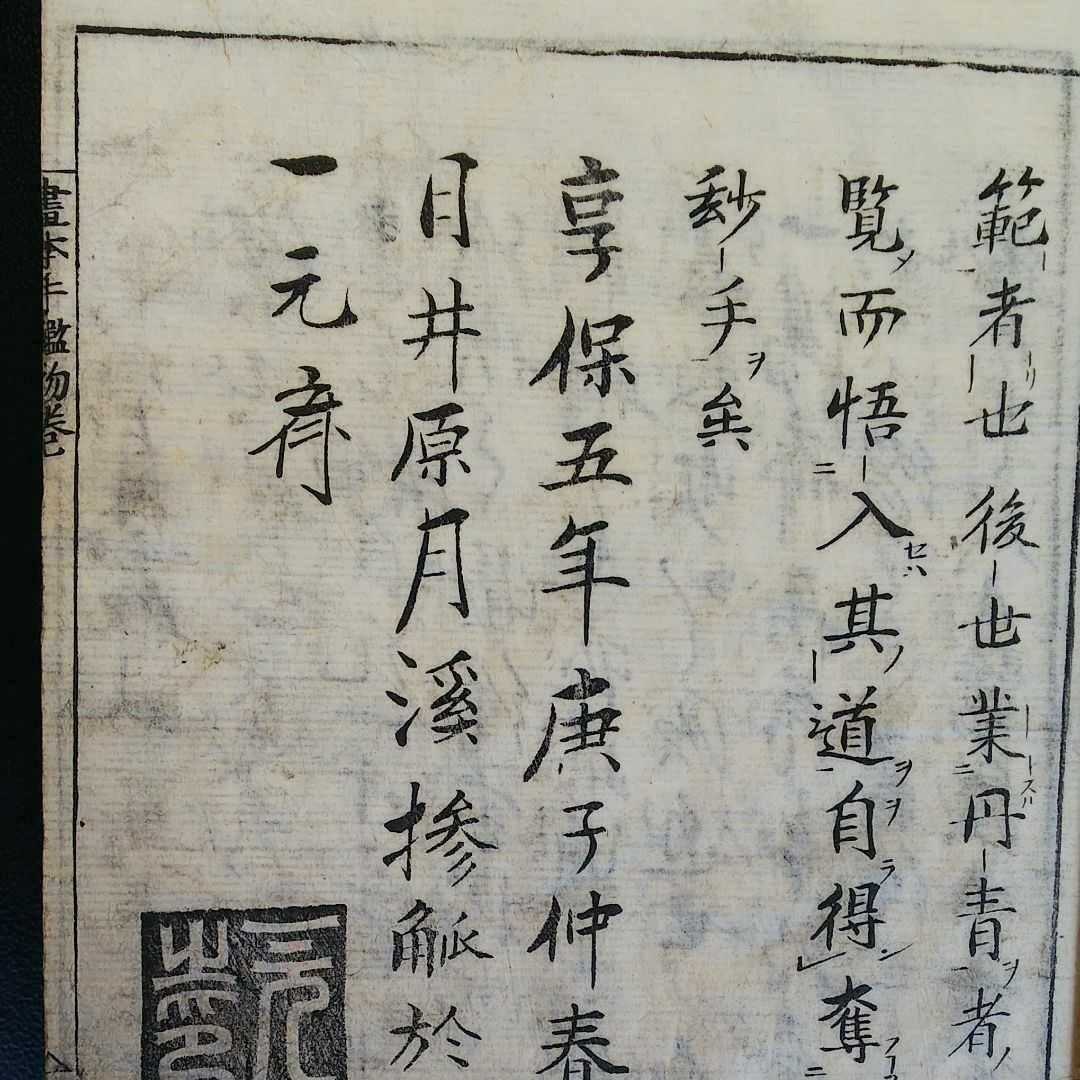 範者也後世業丹青者
覽而悟入其道自得奪
玅手矣
享保五年庚子仲春
日井原月溪摻觚於
一元斎
畫本手鑑初巻